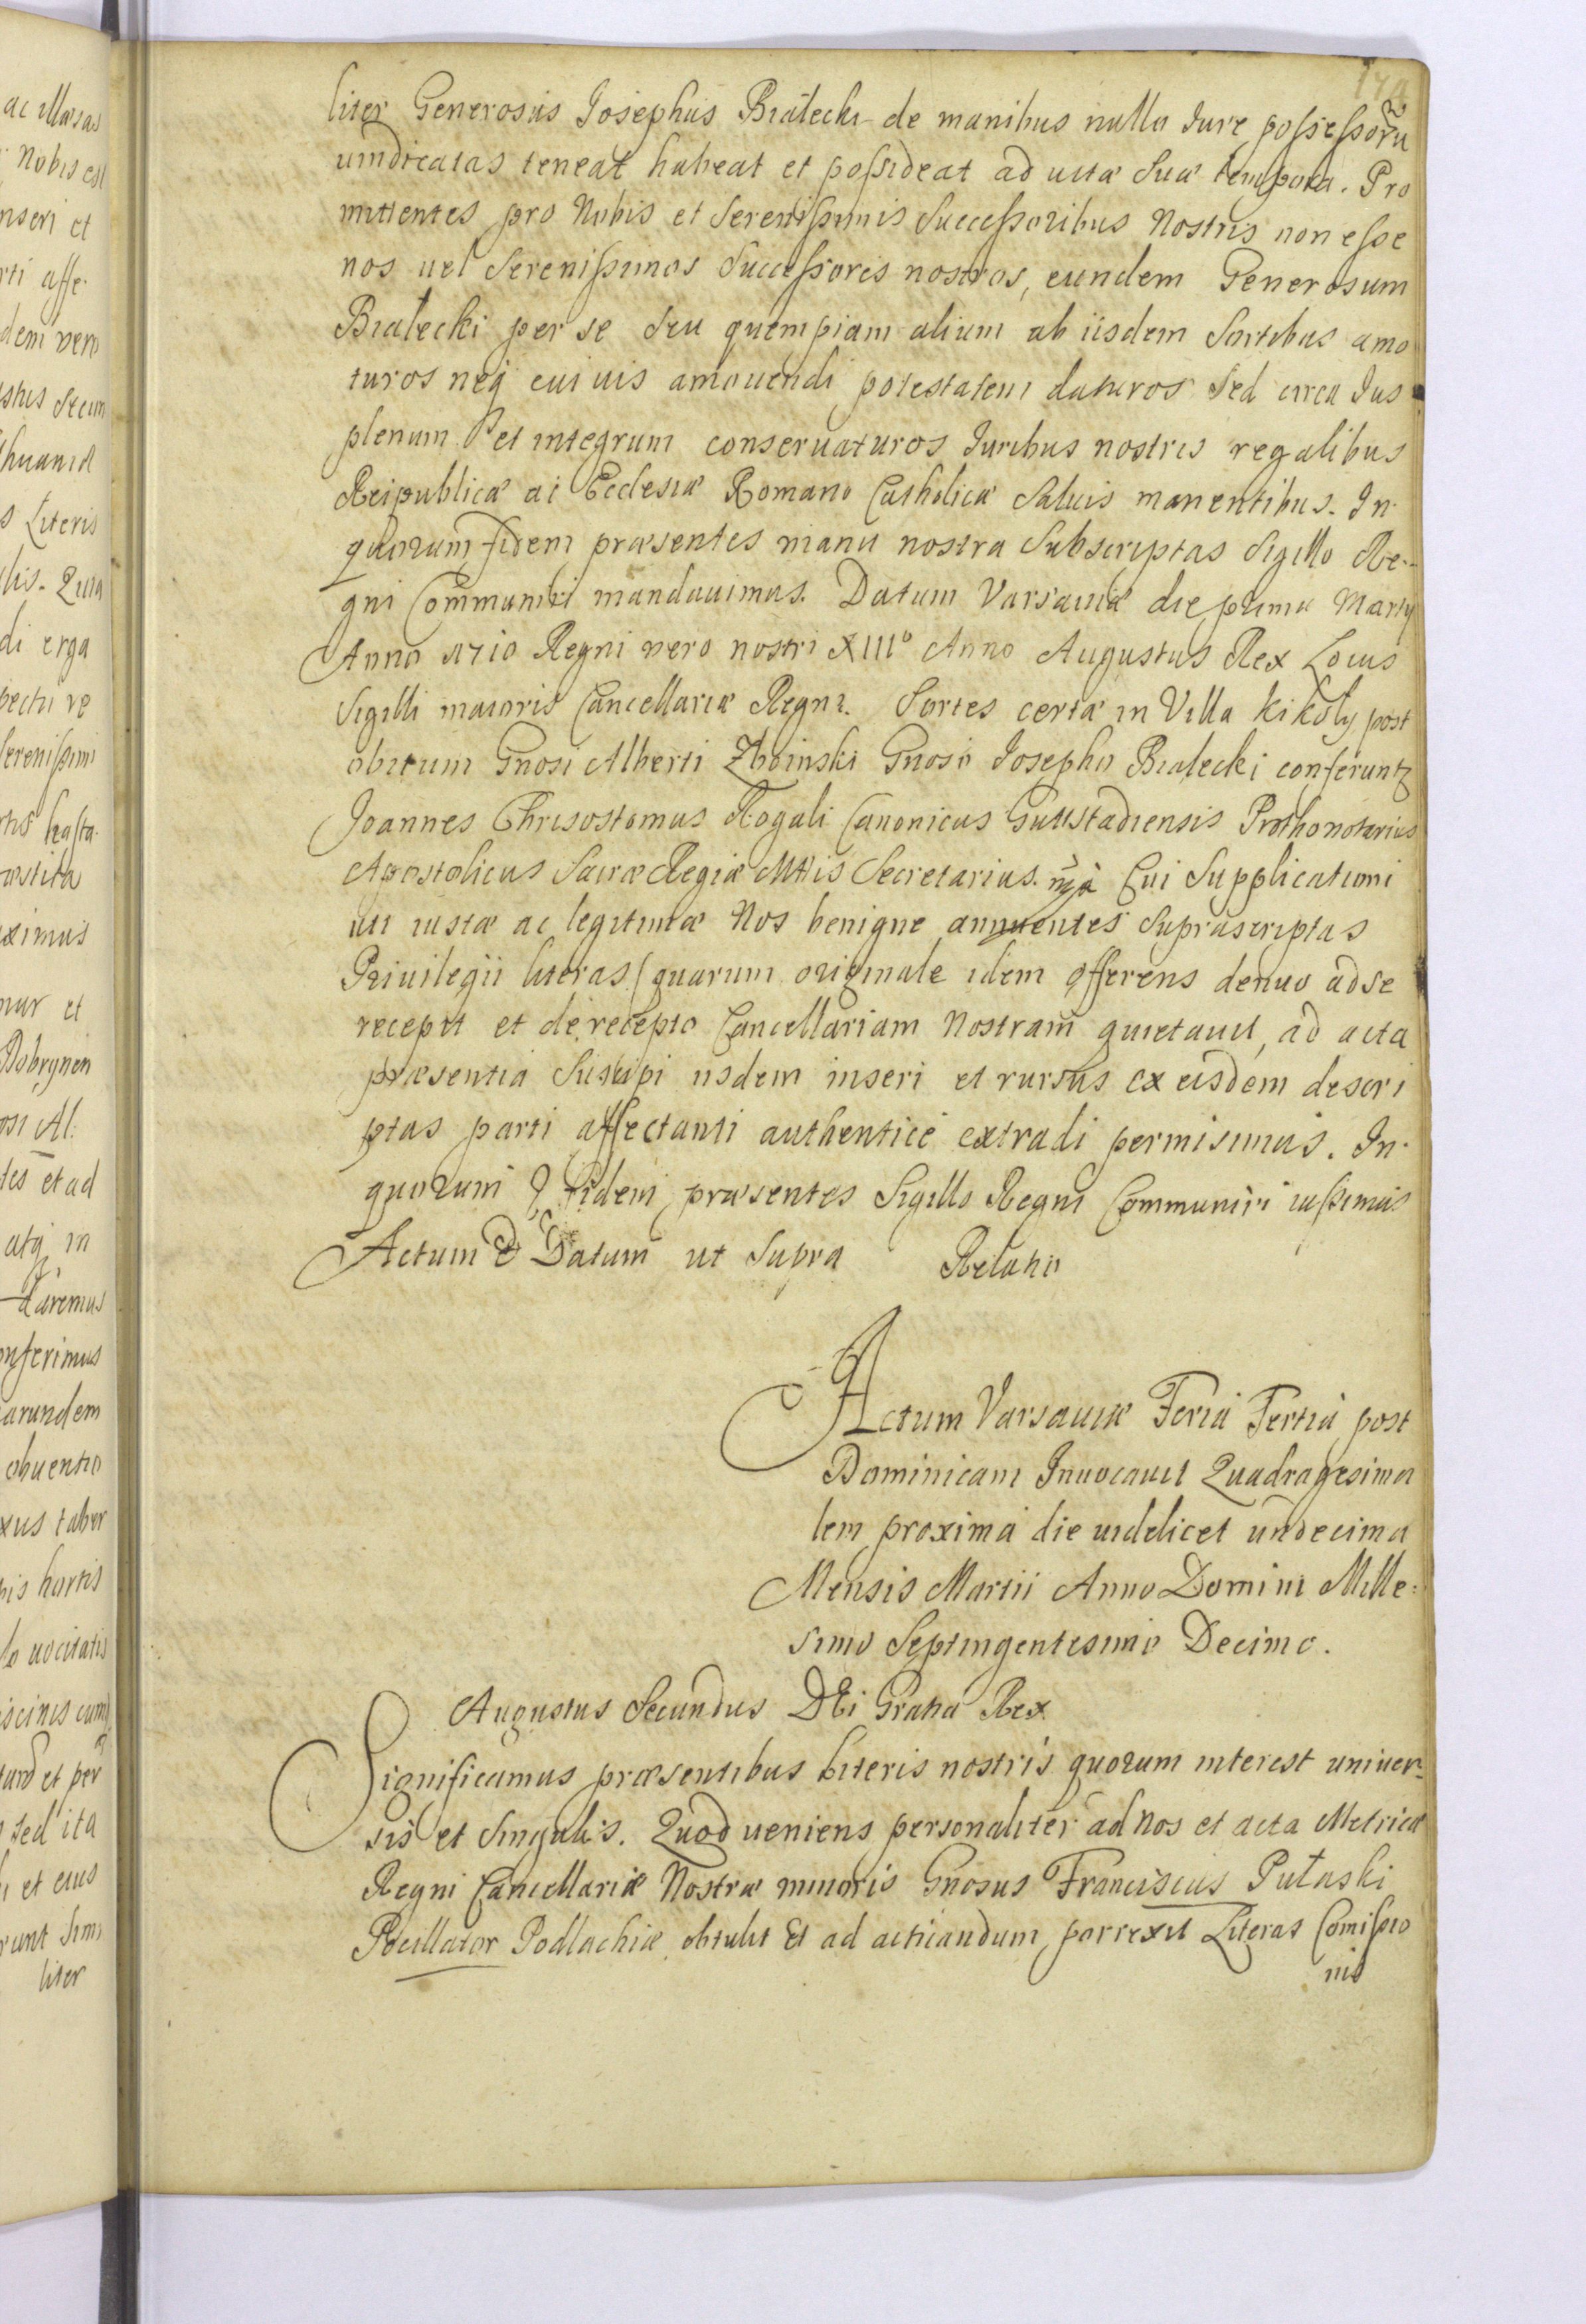 liter Generosus Josephus Białecki de manibus nullo Jure possessorũ
uindicatas teneat habeat et possideat ad uitæ Suæ tempora. Pro
mittentes pro Nobis et Serenissimis Successoribus Nostris non esse
nos uel Serenissimos Successores nostros, eundem Generosum
Białecki per se seu quempiam alium ab iisdem Sortibus amo
turos neq cuiuis amouendi potestatem daturos Sed circa Jus
plenum et integrum conseruaturos Juribus nostris regalibus
Reipublicæ ac Ecclesiæ Romano Catholicæ Saluis manentibus. In
quorum fidem præsentes manu nostra Subscriptas Sigillo Re-
gni Communiri mandauimus. Datum Varsauiæ die prima Martij
Anno 1710 Regni vero nostri XIIIº Anno Augustus Rex Locus
Sigilli maioris Cancellariæ Regni. Sortes certæ in Villa Kikoły post
obitum Gnosi Alberti Zboinski Gnoso Josepho Białecki conferuntz
Joannes Chrisostomus Rogali Canonicus Guttstadiensis Prothonotarius
Apostolicus Sacræ Regiæ Mttis Secretarius. mpà Cui Supplicationi
uti iustæ ac legitimæ Nos benigne annuentes Suprascriptas
Priuilegii literas (quarum originale idem offerens denuo ad se
recepit et de recepto Cancellariam Nostram quietauit, ad acta
præsentia Suscipi iisdem inseri et rursus ex eisdem descri
ptas parti affectanti authentice extradi permisimus. In
quorum fidem præsentes Sigillo Regni Communiri iussimus
Actum & Datum ut Supra Relatio
Actum Varsauiæ Feria Tertia post
Dominicam Inuocauit Quadragesima
lem proxima die uidelicet undecima
Mensis Martii Anno Domini Mille:
simo Septingentesimo Decimo.
Augustus Secundus DEi Gratia Rex
Significamus præsentibus Literis nostris quorum interest univer-
sis et Singulis. Quod ueniens personaliter ad Nos et acta Metricæ
Regni Cancellariæ Nostræ minoris Gnosus Franciscus Pułaski
Pocillator Podlachiæ obtulit Et ad acticandum porrexit Literas Comissio
nis